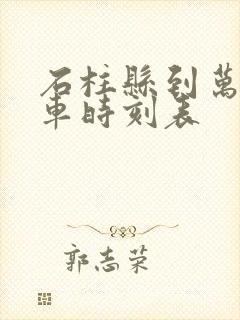 石柱縣到萬
車時刻表
郭志荣